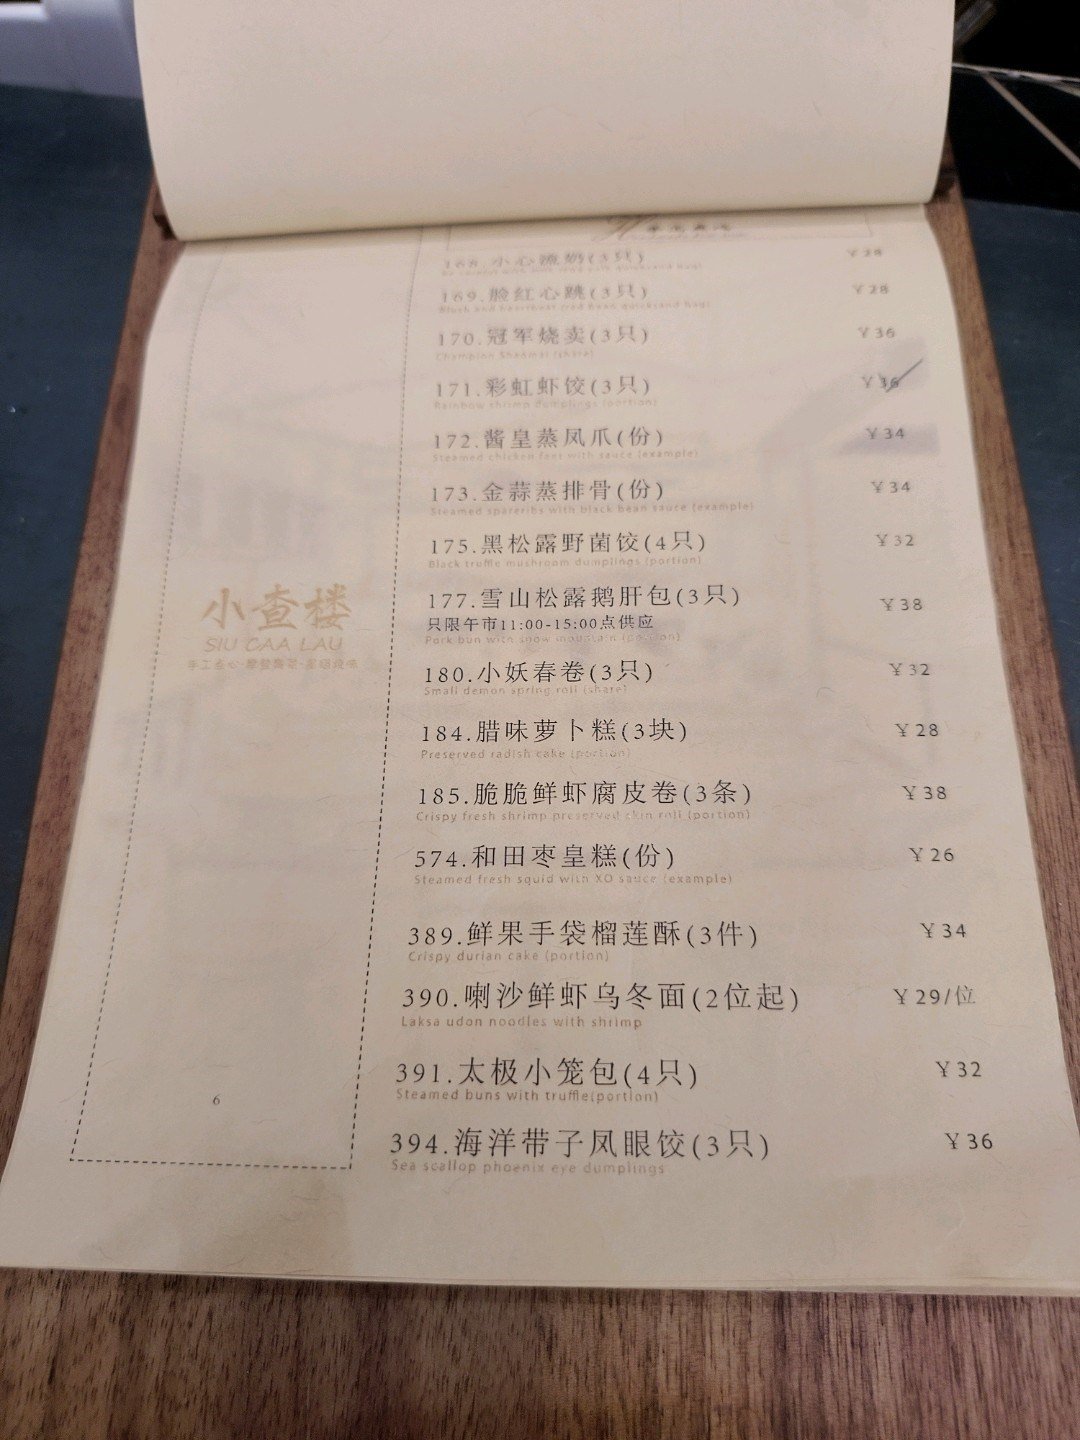 168.小心流奶(3只) ￥28
169.脸红心跳(3只) ￥28
Blush and heartbeat (red bean quicksand bag)
170.冠军烧卖(3只) ￥36
Champion Shaomai (share)
171.彩虹虾饺(3只) ￥36
Rainbow shrimp dumplings (portion)
172.酱皇蒸凤爪(份) ￥34
Steamed chicken feet with sauce (example)
173.金蒜蒸排骨(份) ￥34
Steamed spareribs with black bean sauce (example)
175.黑松露野菌饺(4只) ￥32
Black truffle mushroom dumplings (portion)
177.雪山松露鹅肝包(3只) ￥38
只限午市11:00-15:00点供应
Pork bun with snow mountain (portion)
180.小妖春卷(3只) ￥32
Small demon spring roll (share)
184.腊味萝卜糕(3块) ￥28
Preserved radish cake (portion)
185.脆脆鲜虾腐皮卷(3条) ￥38
Crispy fresh shrimp preserved skin roll (portion)
574.和田枣皇糕(份) ￥26
Steamed fresh squid with XO sauce (example)
389.鲜果手袋榴莲酥(3件) ￥34
Crispy durian cake (portion)
390.喇沙鲜虾乌冬面(2位起) ￥29/位
Laksa udon noodles with shrimp
391.太极小笼包(4只) ￥32
Steamed buns with truffle(portion)
394.海洋带子凤眼饺(3只) ￥36
Sea scallop phoenix eye dumplings
小查楼
SIU CAA LAU
6